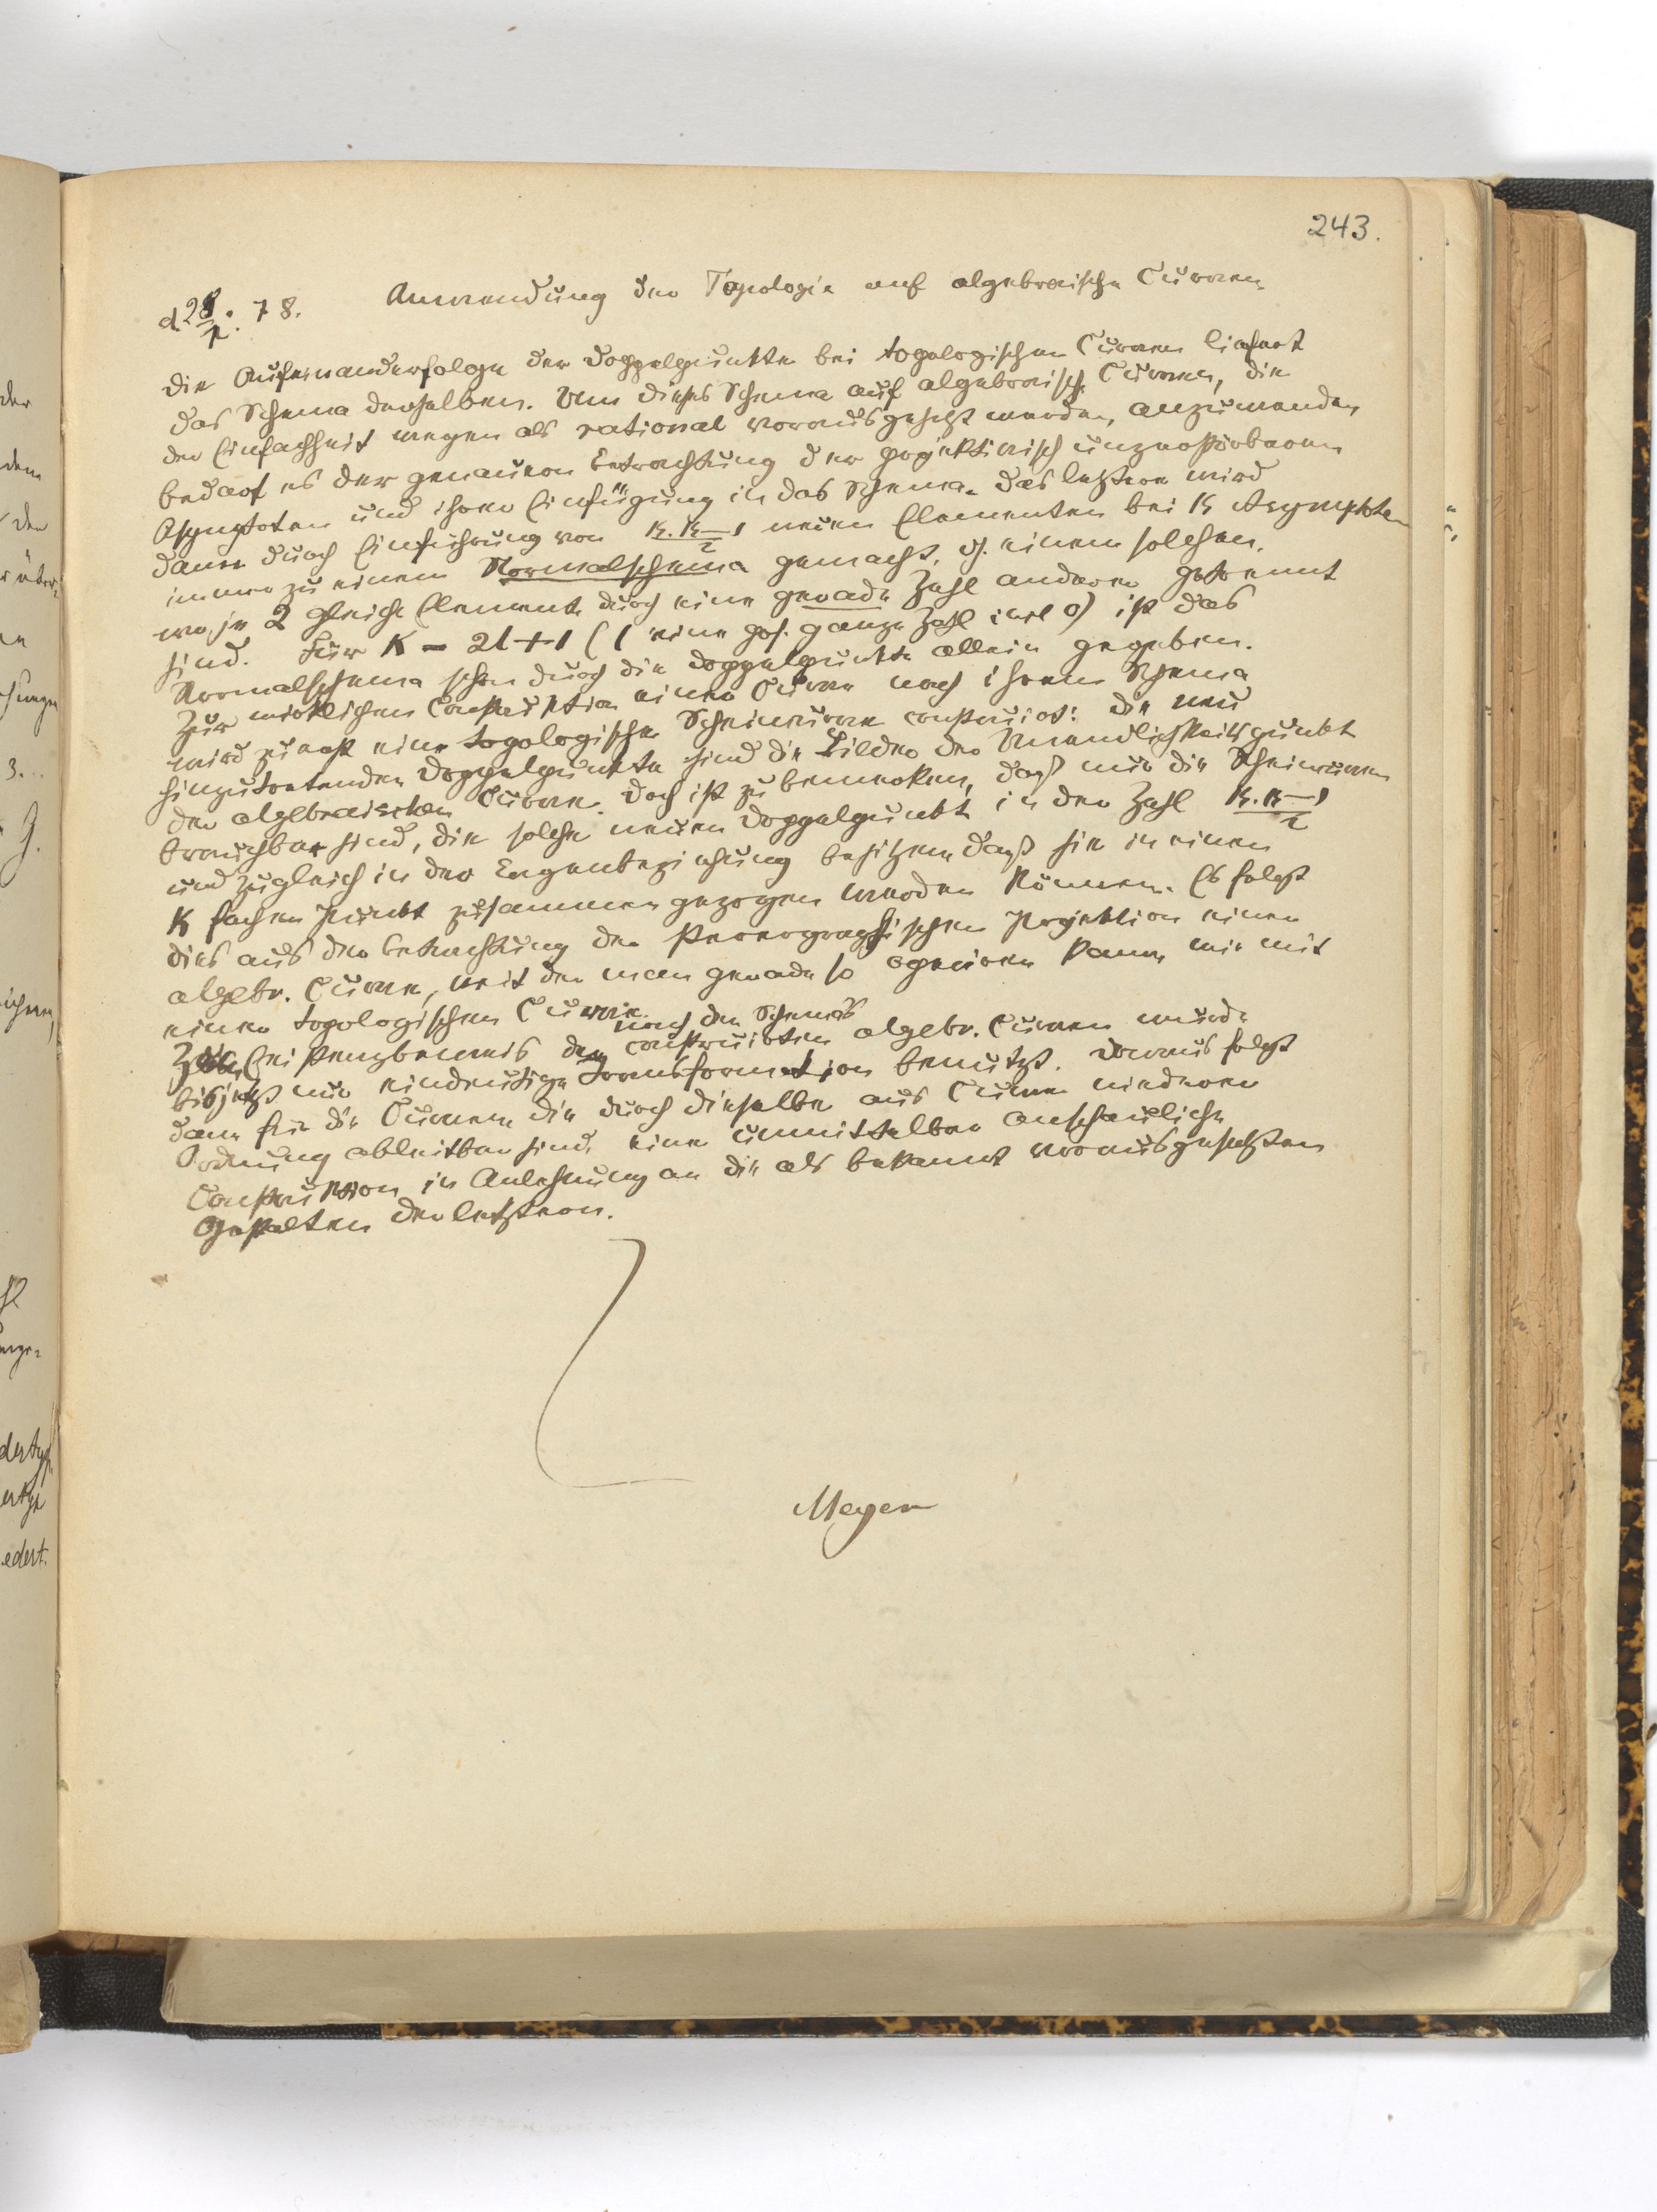 243.
d. 28/1. 78. Anwendung der Topologie auf algebraische Curven.
Die Aufeinanderfolge der Doppelpunkte bei topologischen Curven liefert
das Schema derselben. Um dieses Schema auf algebraische Curven, die
der Einfachheit wegen als rational vorausgesetzt werden, anzuwenden
bedarf es der genauern Betrachtung der projektivisch unzerstörbaren
Asymptoten und ihrer Einfügung in das Schema. Das letztere wird
dann durch Einführung von K.K–1/2 neuen Elementen bei K Asymptoten
immer zu einem Normalschema gemacht, d. einem solchen,
wo je 2 gleiche Elemente durch eine gerade Zahl anderer getrennt
sind. Für K = 2l+1 (l eine pos. ganze Zahl incl 0) ist das
Normalschema schon durch die Doppelpunkte allein gegeben.
Zur wirklichen Construktion einer Curve nach ihrem Schema
wird zuerst eine topologische Scheincurve construirt: die neu
hinzutretenden Doppelpunkte sind die Bilder der Unendlichkeitspunkte
der algebraischen Curve. Doch ist zu bemerken, daß nur die Scheincurven
brauchbar sind, die solche neuen Doppelpunkte in der Zahl K.K–1/2
und zugleich in der Lagenbeziehung besitzen, daß sie in einen
K fachen Punkt zusammengezogen werden können. Es folgt
dies aus der Betrachtung der stereographischen Projektion einer
algebr. Curve, mit der man gerade so operiren kann, wie mit
einer topologischen Curve.
Zum Existenzbeweis der nach den Schemas construirten algebr. Curven wurde
bisjetzt nur eindeutige Transformation benutzt. Daraus folgt
dann für die Curven, die durch dieselbe aus Curven niederer
Ordnung ableitbar sind, eine unmittelbar anschauliche
Construktion in Anlehnung an die als bekannt vorausgesetzten
Gestalten der letztern.
Meyer